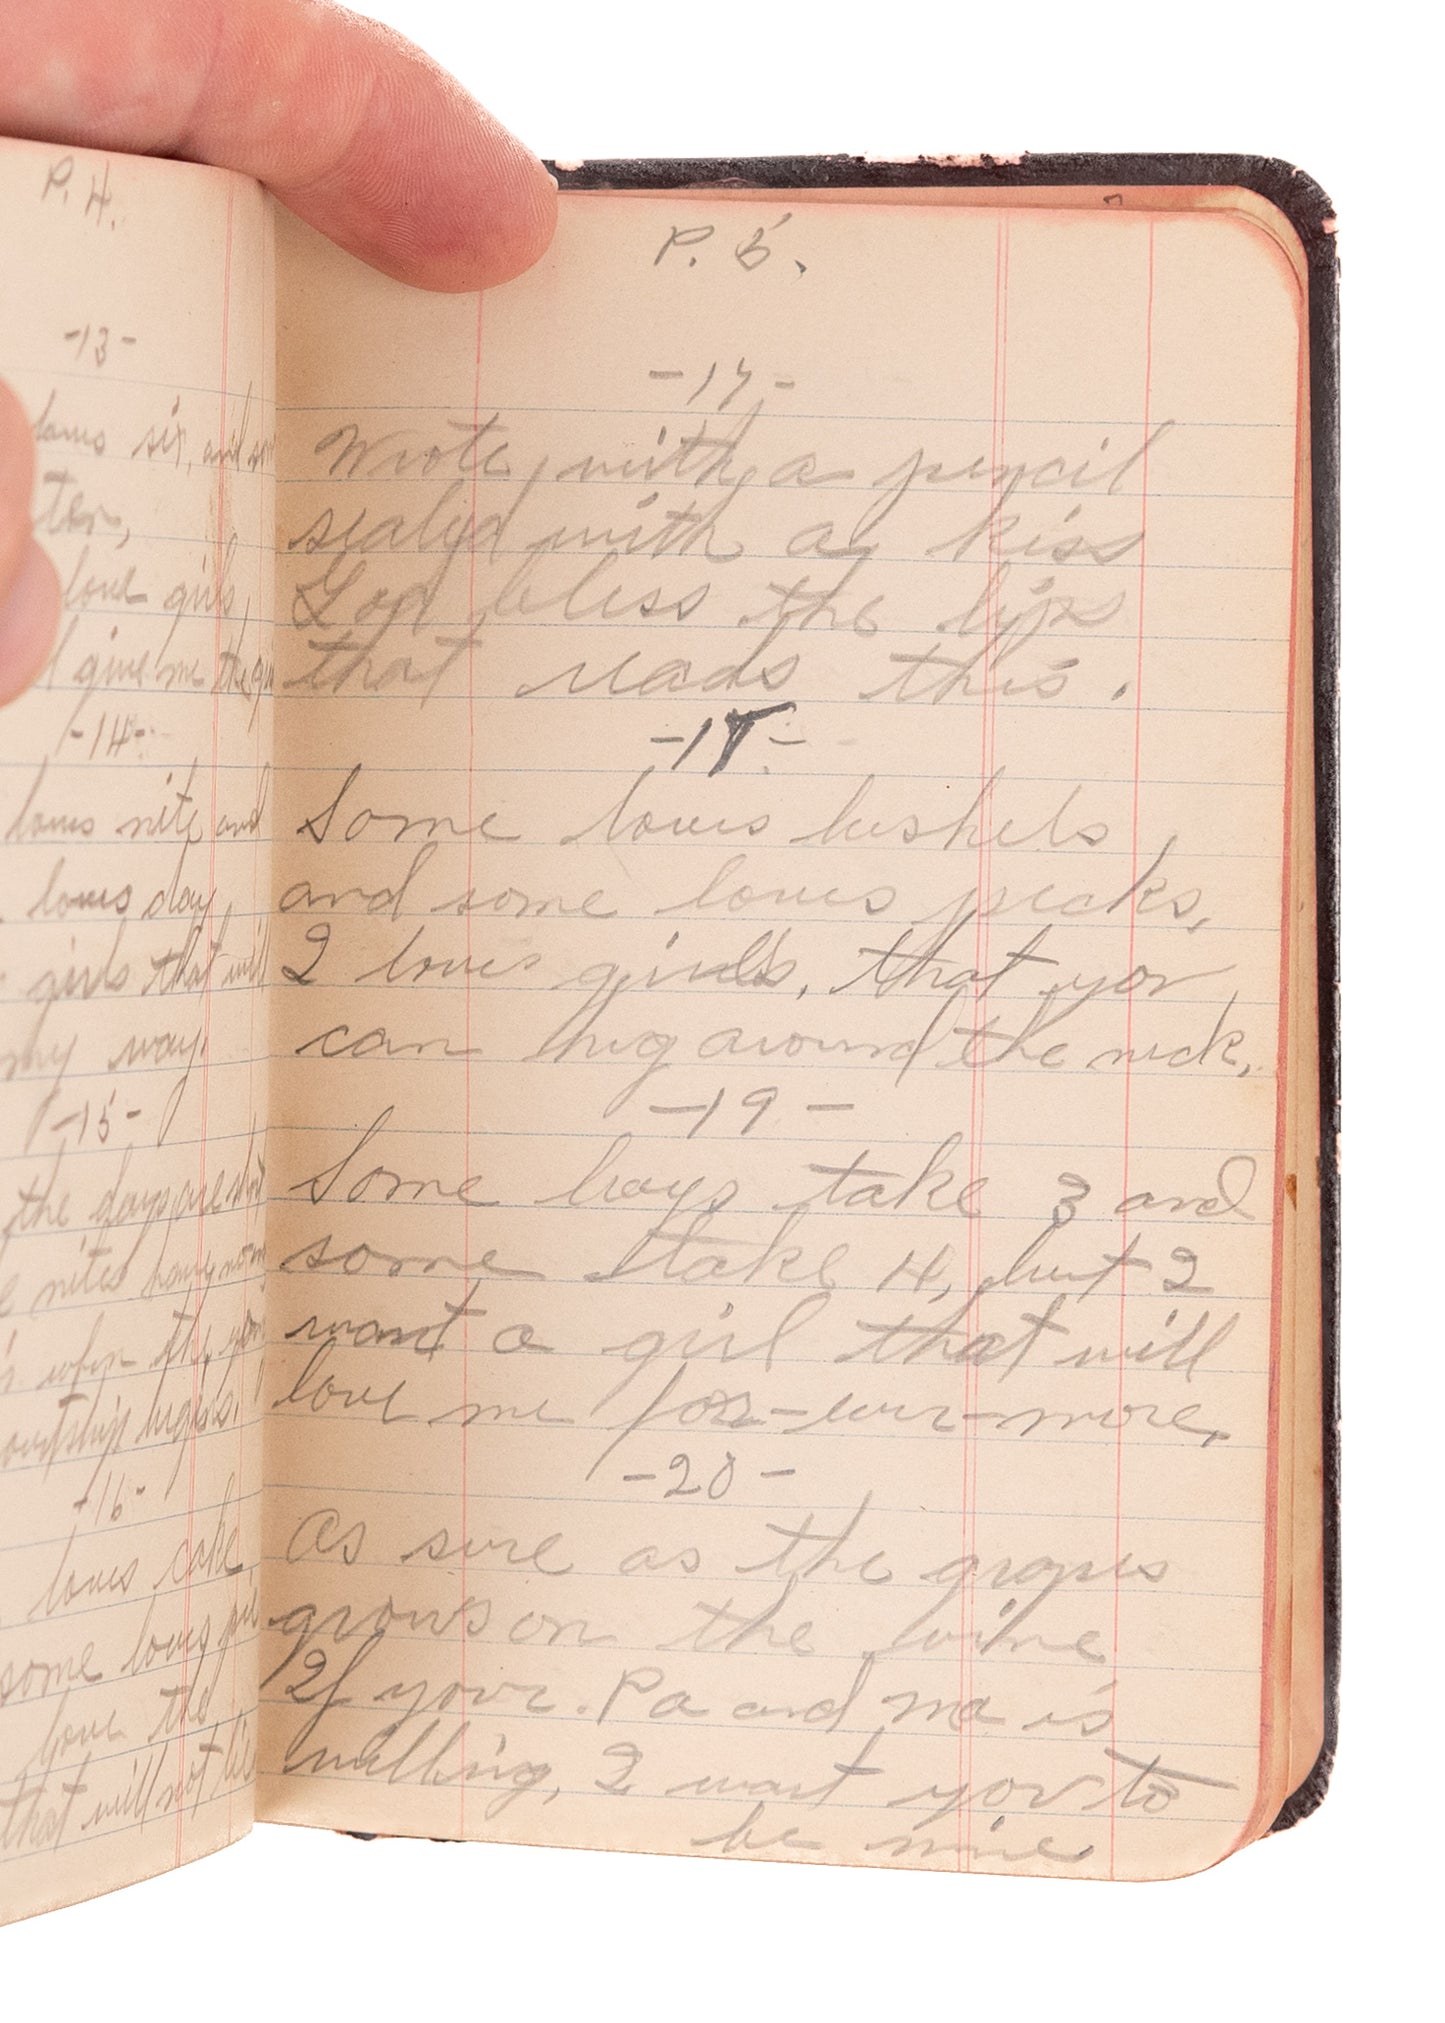 P. 4.
-13-
loves six, and
ter,
love girls,
give me the
-14-
loves nite and
loves day,
girls that will
my way.
-15-
the days are short
nites
when the
-16-
loves cake
some loves pie
love the
that will not
P. 5.
-17-
Wrote, with, a pencil
sealyd with a, kiss
God bless the lips
that reads this.
-18-
Some loves bushels,
and some loves pecks,
I loves girls, that yov,
can hug around the neck,
-19-
Some boys take 3 and
some take 4, but I
want a girl that will
love me for-ever-more,
-20-
As sure as the grapes
grows on the vine
If your. Pa and ma is
willing, I want yov to
be mine